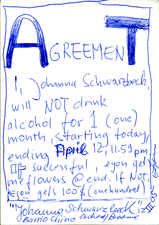 AGREEMENT
I, Johanna Schwarzbeck,
will NOT drink
alcohol for 1 (one)
month, starting today,
ending April 12, 11:59 pm.
If successful, you get
me flowers @ end. If NOT,
you gets 100$ (onehundred)
"Johanna Schwarzbeck"